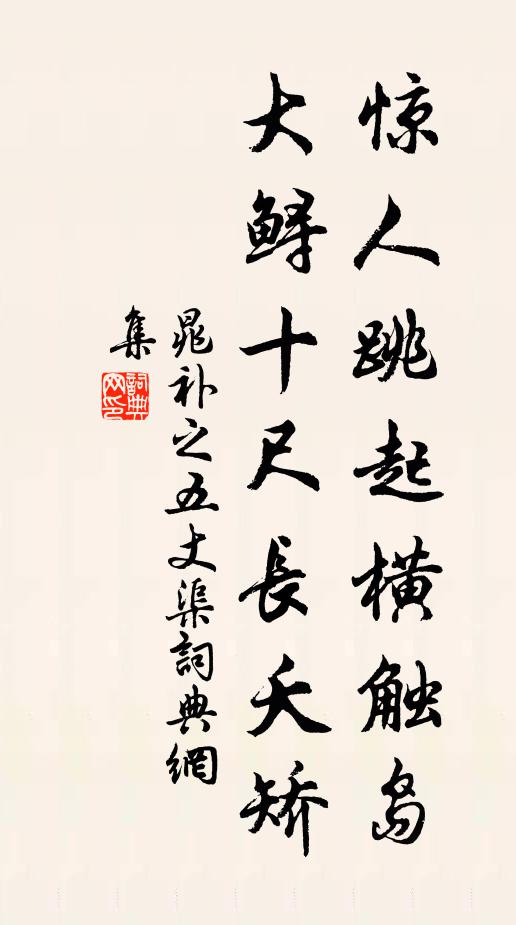 惊人跳起横触岛
大鲟十尺長夭矫
晁补之五丈渠詞典網
集
詞典
网印